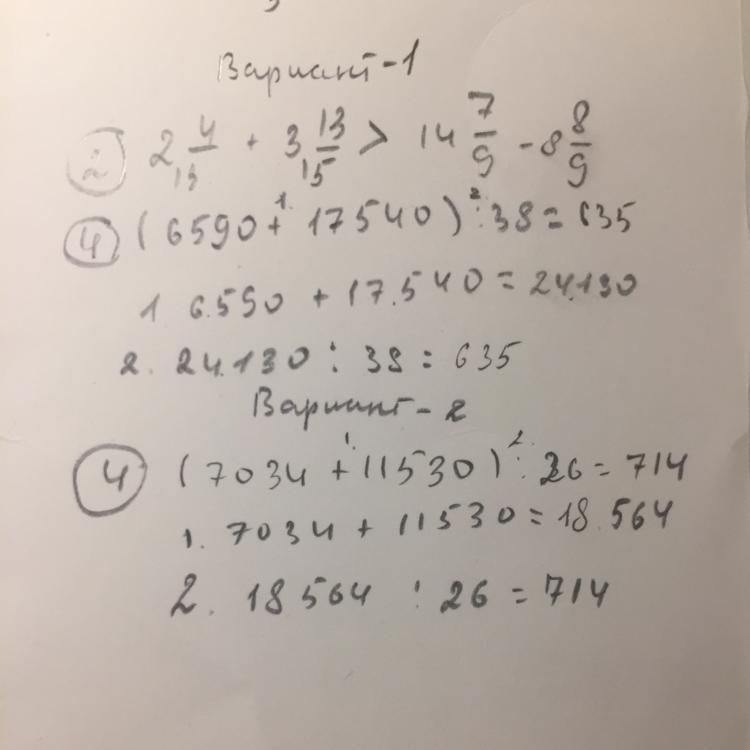 Вариант-1
② 2 4/15 + 3 13/15 > 14 7/9 - 8 8/9
④ (6590 +¹· 17540) ²: 38 = 635
1 6.590 + 17.540 = 24.130
2. 24.130 : 38 = 635
Вариант-2
④ (7034 +¹· 11530) ²: 26 = 714
1. 7034 + 11530 = 18.564
2. 18564 : 26 = 714